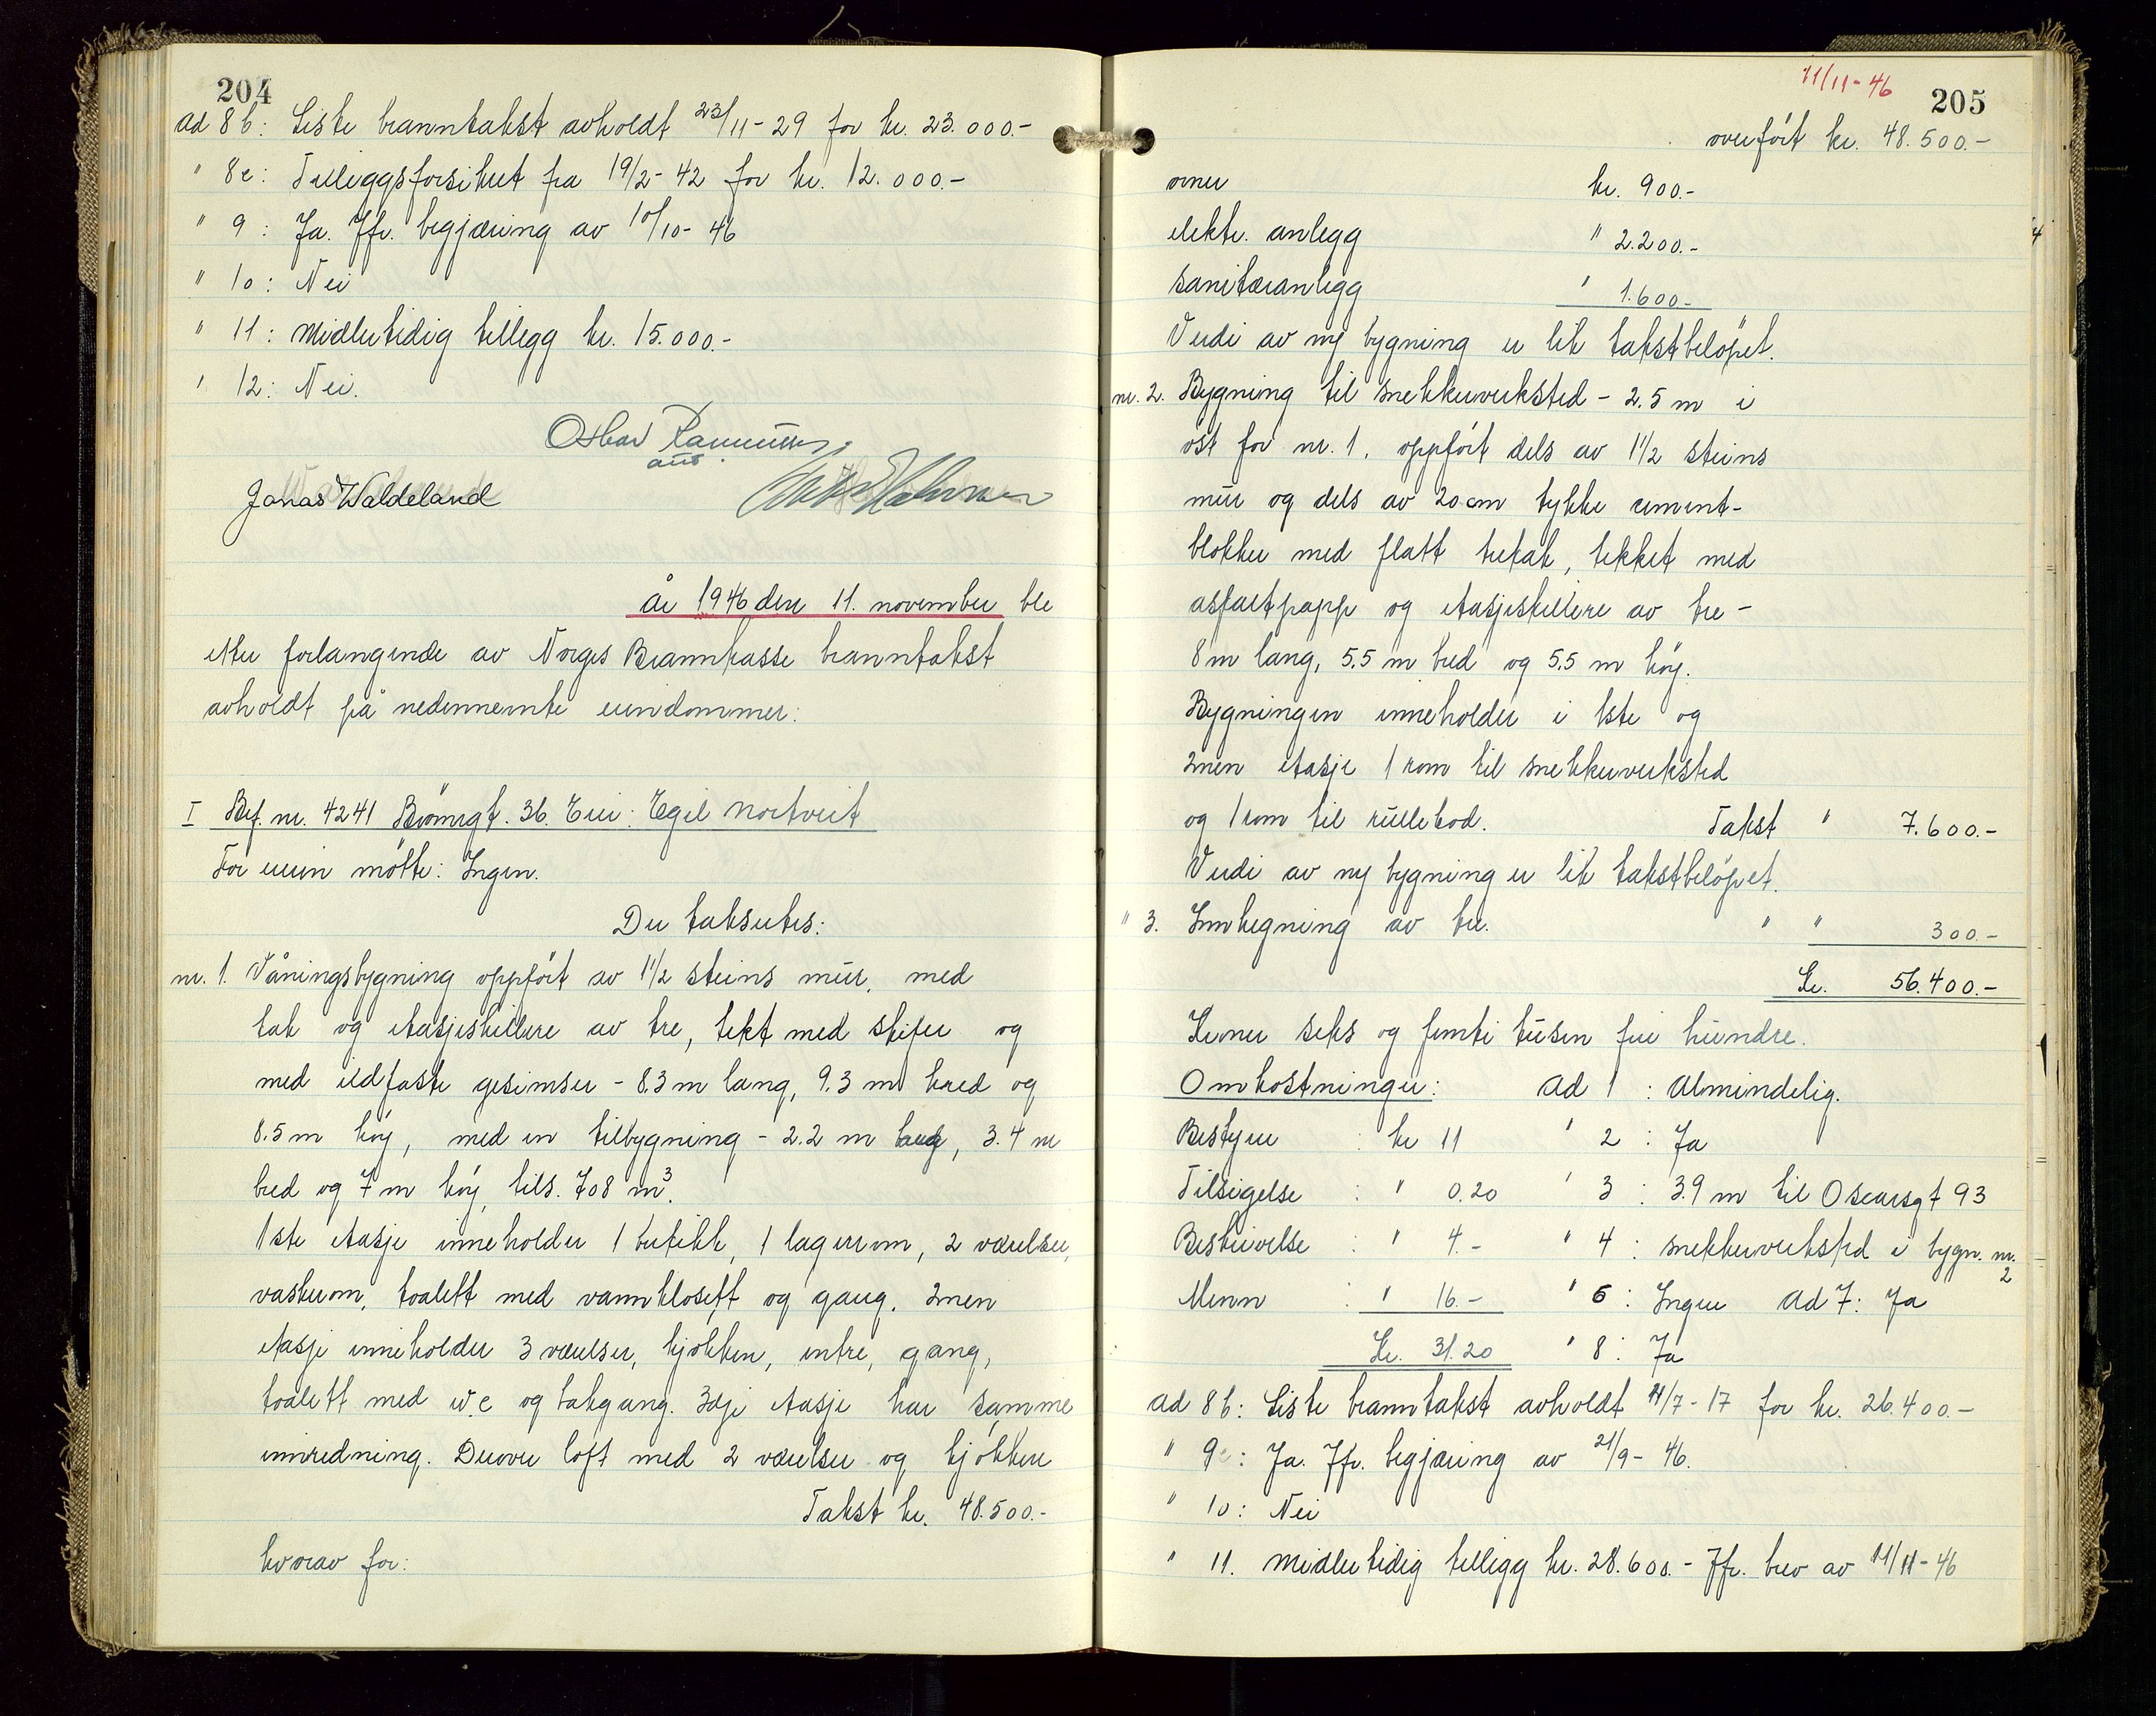 204
ad 8 b: Siste branntakst avholdt 23/11-29 for kr. 23.000.-
" 8c: Tilleggsforsikret fra 19/2-42 for kr. 12.000.-
" 9: Ja. Jfr. begjæring av 10/10-46
" 10: Nei
" 11: Midlertidig tillegg kr. 15.000.-
" 12: Nei.
Oskar
Jonas Waldeland
År 1946 den 11. november ble
etter forlangende av Norges Brannkasse branntakst
avholdt på nedennevnte eiendommer:
I Bef. nr. 4241 Eier: Egil Nortveit
For eieren møtte: Ingen.
Der takseres:
nr. 1. Våningsbygning oppført av 1 1/2 steins mur, med
tak og etasjeskillere av tre, tekt med skifer og
med ildfaste gesimser - 8.3 m lang, 9.3 m bred og
8.5 m høy, med en tilbygning - 2.2 m lang, 3.4 m
bred og 7 m høy, tils. 708 m3.
1ste etasje inneholder 1 butikk, 1 lagerrom, 2 værelser,
vaskerom, toalett med vannklosett og gang. 2nen
etasje inneholder 3 værelser, kjøkken, entre, gang,
toalett med w.c og bakgang. 3dje etasje har samme
innredning. Derover loft med 2 værelser og kjøkken
Takst kr. 48.500.-
hvorav for:
11/11-46
205
overført kr. 48.500.-
ovner kr. 900.-
elektr. anlegg " 2.200.-
sanitæranlegg " 1.600.-
Verdi av ny bygning er lik takstbeløpet.
nr. 2. Bygning til snekkerverksted - 2.5 m i
øst for nr. 1, oppført dels av 1 1/2 steins
mur og dels av 20 cm tykke cement-
blokker med flatt tretak, tekket med
asfaltpapp og etasjeskillere av tre -
8 m lang, 5.5 m bred og 5.5 m høy.
Bygningen inneholder i 1ste og
2nen etasje 1 rom til snekkerverksted
og 1 rom til rullebod. Takst " 7.600.-
Verdi av ny bygning er lik takstbeløpet.
" 3. Innhegning av tre. " " 300.-
Kr. 56.400.-
Kroner seks og femti tusen fire hundre.
Omkostninger: ad 1 : Almindelig.
Bestyrer : kr 11 " 2 : Ja
Tilsigelse : " 0.20 " 3 : 3.9 m til Oscarsgt 93
Beskrivelse : " 4.- " 4 : snekkerverksted i bygn. nr. 2
Menn : " 16.- " 6 : Ingen ad 7: Ja
Kr. 31.20 " 8 : Ja
ad 8 b: Siste branntakst avholdt 11/7-17 for kr. 26.400.-
" 9 : Ja. Jfr. begjæring av 21/9-46.
" 10: Nei
" 11. Midlertidig tillegg kr. 28.600.- Jfr. brev av 11/11-46